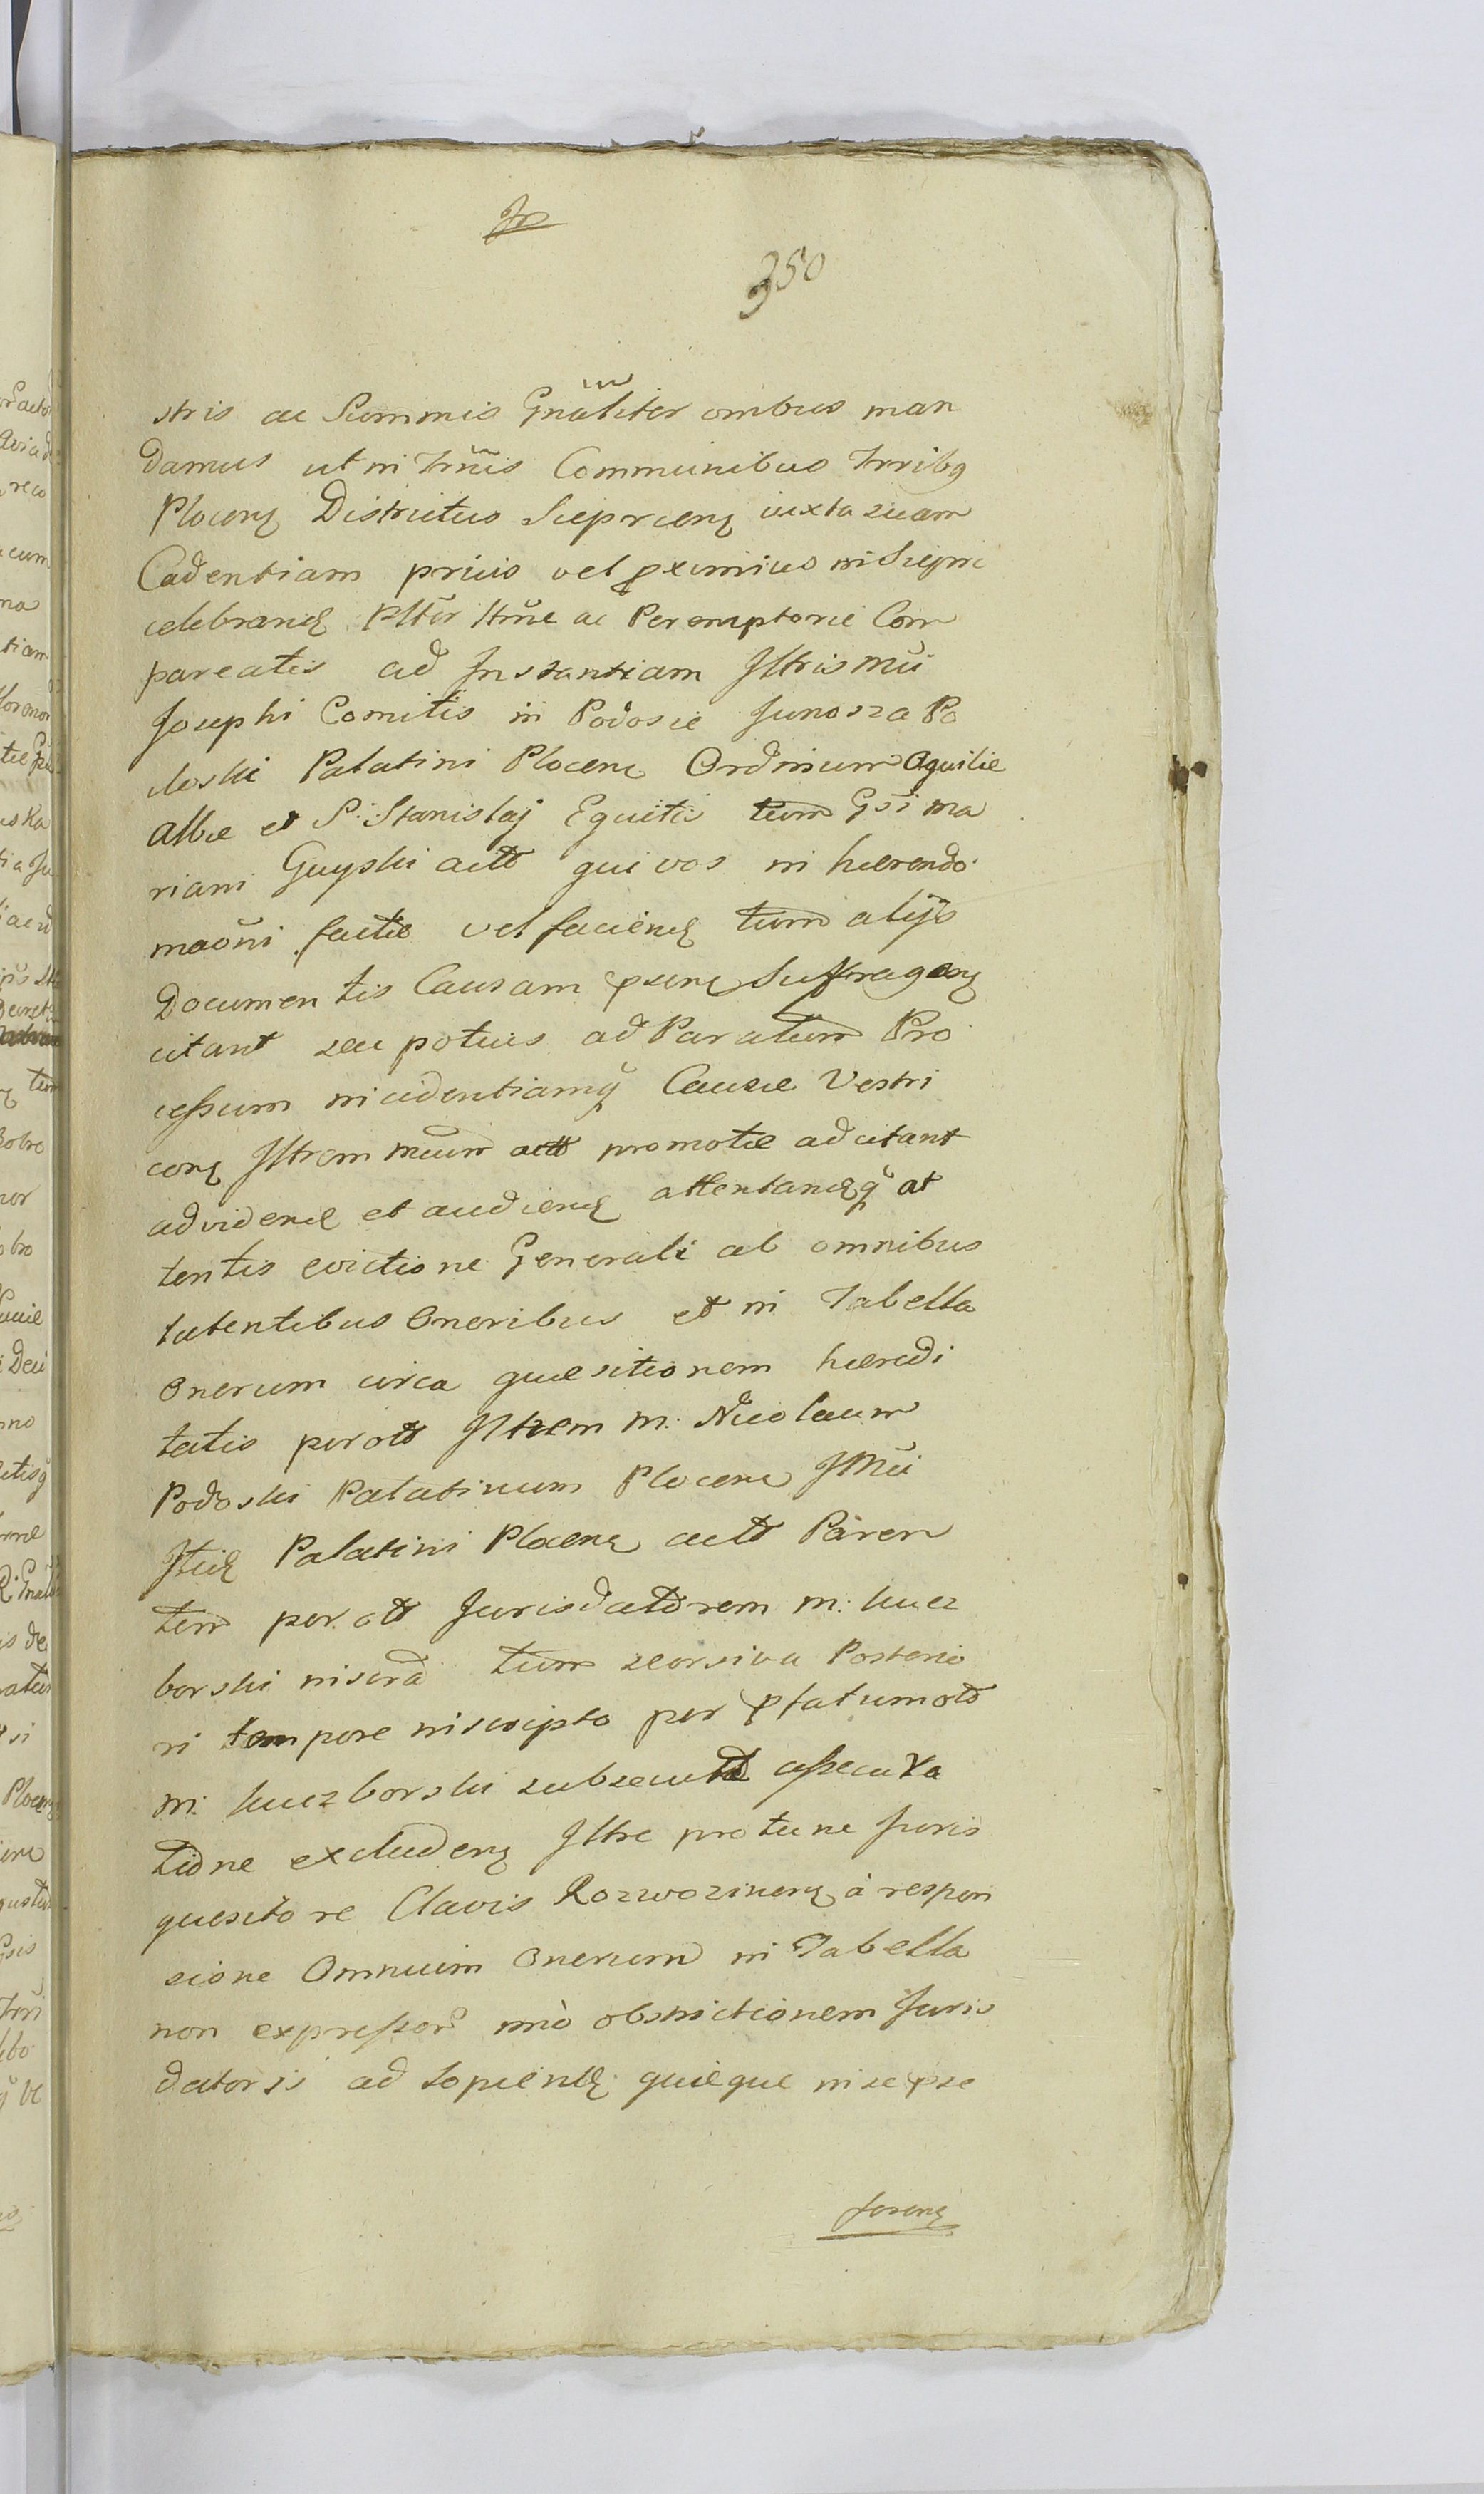 350
stris ac Summis Gnãliter ombus man
damus ut in Trm̃is Communibus Trribq
Plocenq Districtus Sieprcenq iuxta suam
Cadentiam prius vel pximius in Sieprc
celebrandq Pltẽr Itñe ac Peremptorie Com
pareatis ad Instantiam Illtris Mũi
Josephi Comitis in Podosie Junosza Po
doski Palatini Plocenq Ordinum Aquilæ
Albæ et S: Stanislaj Equitis tum Gsi Ma
riani Guyski actt qui vos in hærendo
maõni factæ vel faciendq tum alijs
Documentis Causam psenq Suffragenq
citant seu potius ad Paratum Pro
cessum incidentiamq Causæ Vestri
corq Illtrem Mũum actt promotæ adcitant
ad videndq et audiendq attentandqq at
tentis evictione Generali ab omnibus
latentibus Oneribus et in Tabella
Onerum circa quæsitionem hæredi
tatis per ott Illtrem M: Nicolaum
Podoski Palatinum Plocenq JMũi
Palatini Plocenq actt Paren
tem per ott Jurisdatorem M: Kucz
borski insertâ tum seorsiva Posterio
ri tempore inscripto per pfatum ott
M: Kuczborski subsecutâ assecura
tione excludenq Illtre pro tunc Juris
quæsitore Clavis Rozwozinenq à respon
sione Omnium Onerum in Tabella
non expressor imò obstrictionem Juris
datoris ad sopiendq quæque in se pse
ferenq